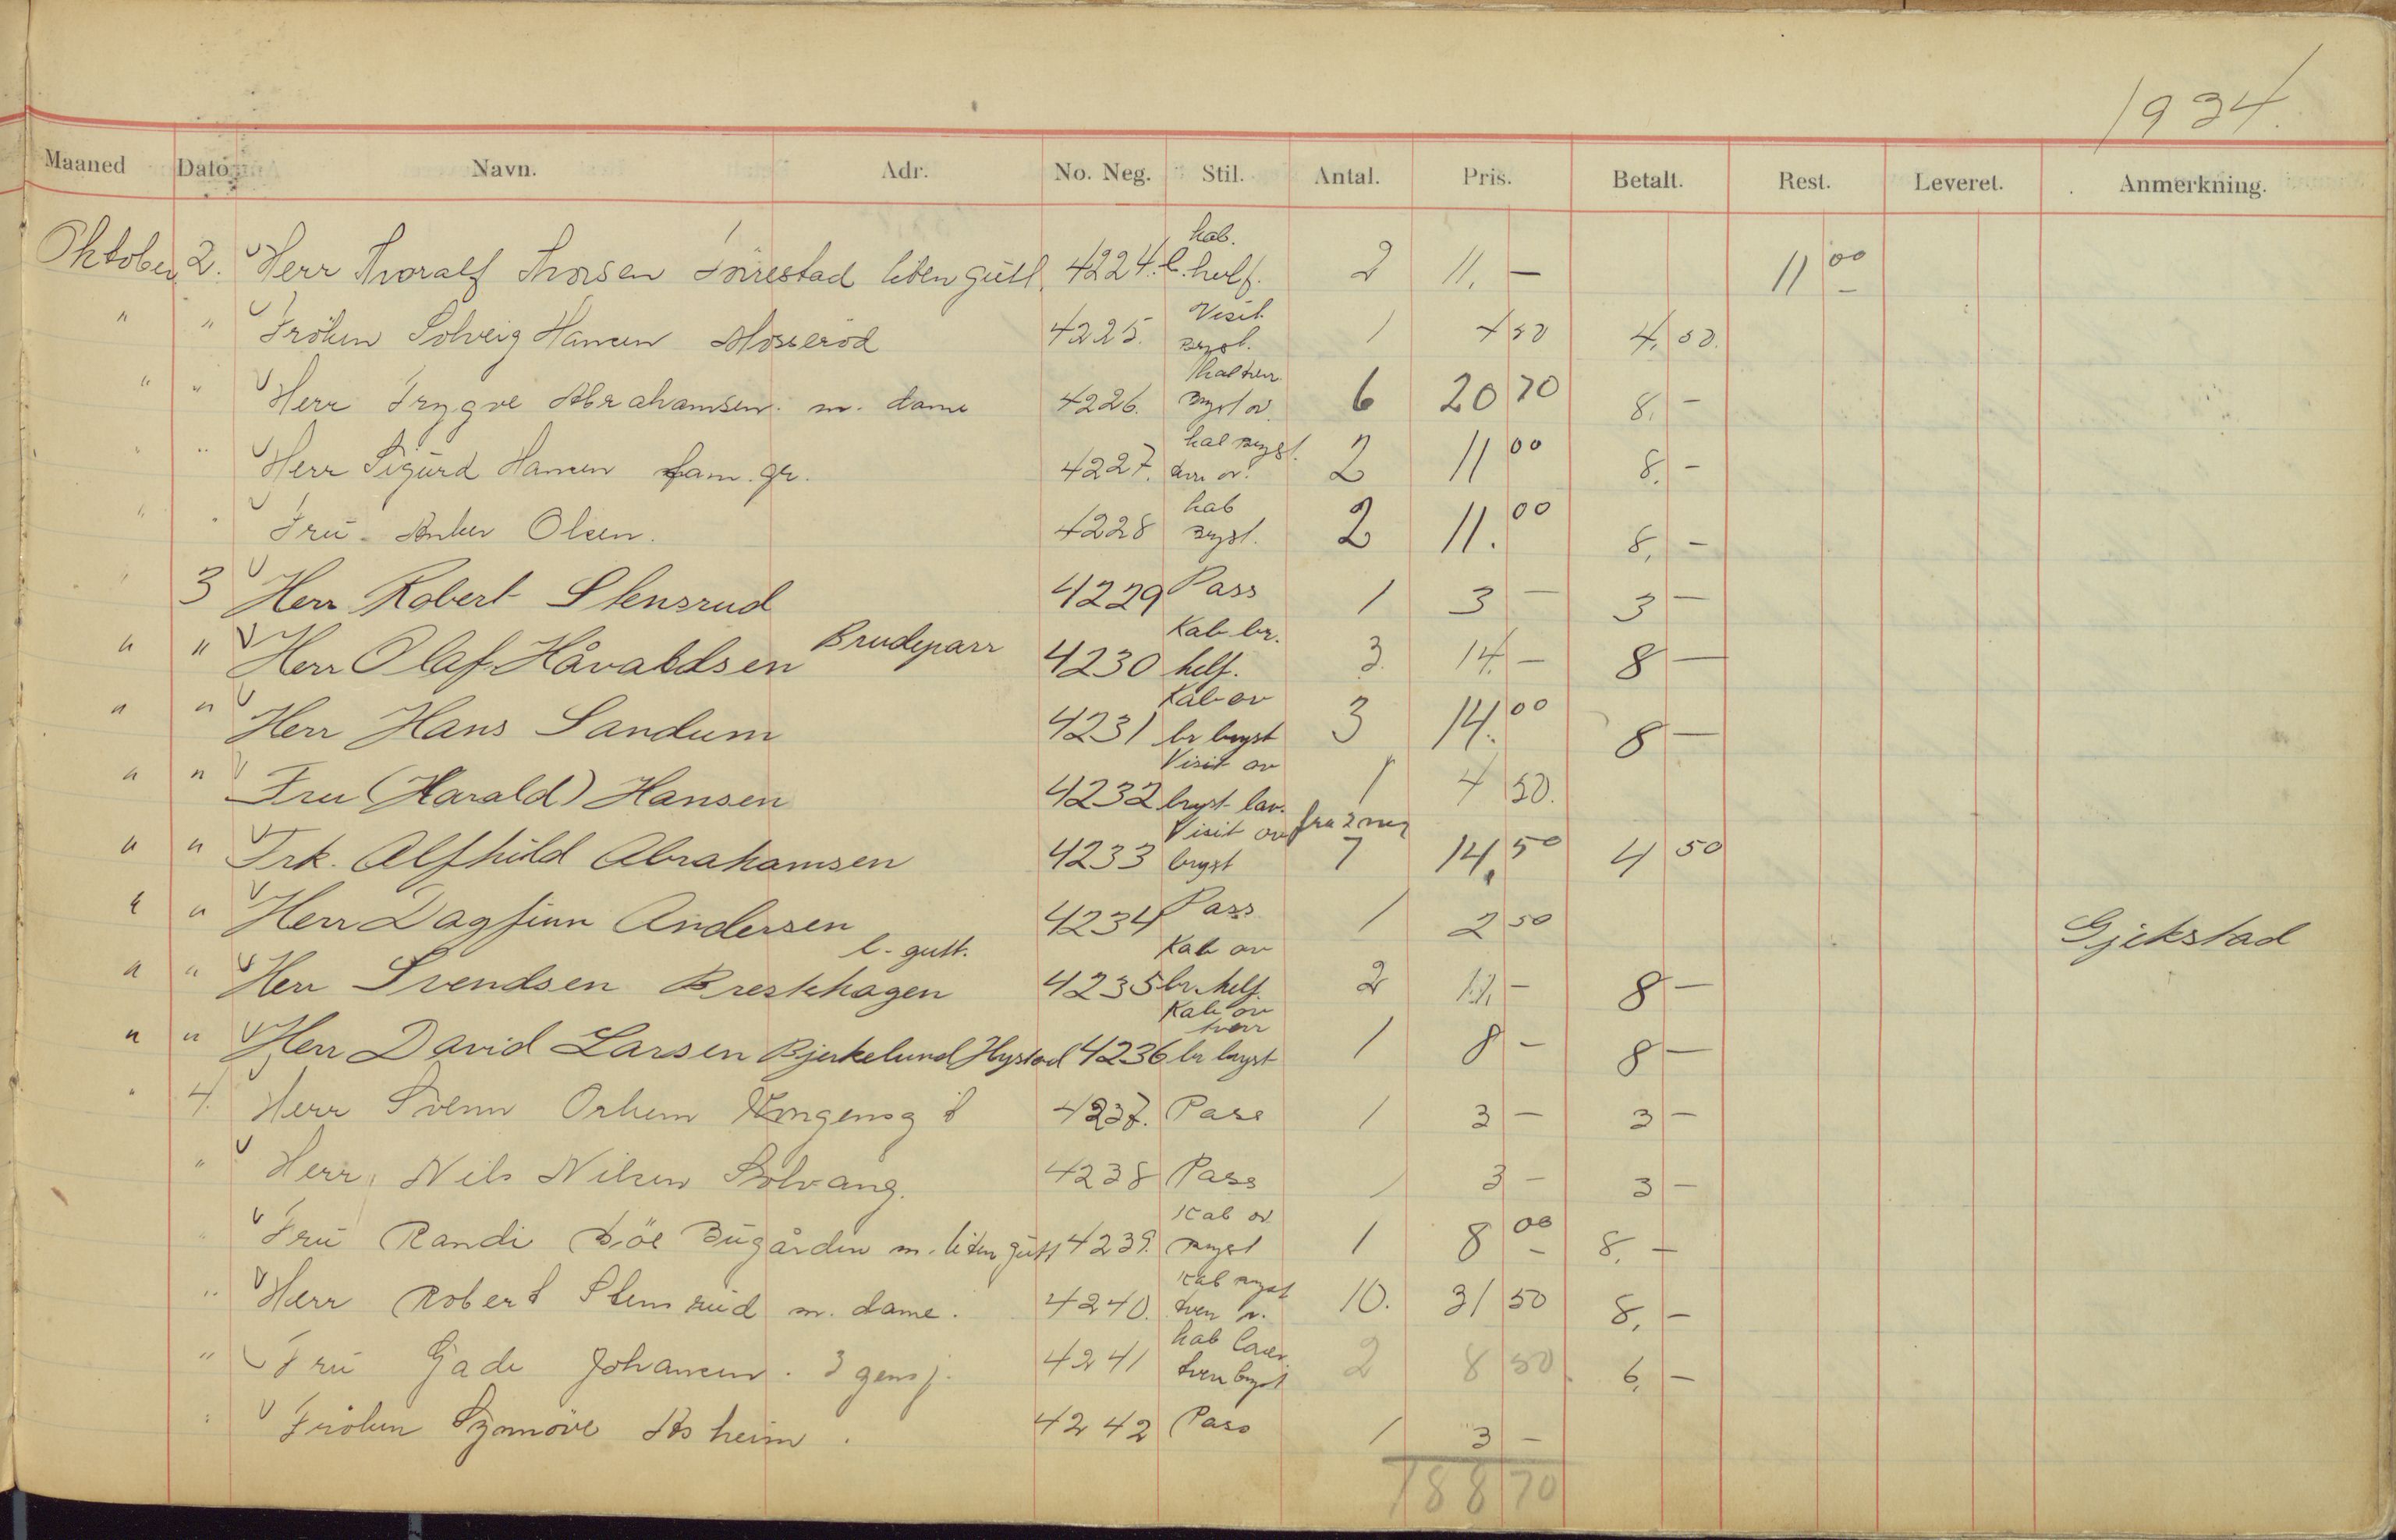 1934.
Maaned Dato Navn. Adr. No. Neg. Stil. Antal. Pris. Betalt. Rest. Leveret. Anmerkning.
Oktober 2. Herr Thoralf Thorsen liten gutt. 4224. kab. helf. 2 11. — 11 00
" " Fröken Solveig Hansen Mosseröd 4225. Visit 1 4 50 4, 50.
" " Herr Trygve Abrahamsen m. dame 4226. 6 20 70 8. -
" " Herr Sigurd Hansen fam. gr. 4227. 2 11 00 8. -
" " Fru Anker Olsen. 4228 kab bryst. 2 11. 00 8, -
" 3 Herr Robert Stensrud 4229 Pass 1 3 — 3 —
" " Herr Olaf Håvaldsen Brudeparr 4230 Kab br. helf. 3. 14. — 8 —
" " Herr Hans Sandum 4231 Kab ov br bryst 3 14. 00 8 —
" " Fru (Harald) Hansen 4232 Visit ov bryst lav. 1 4 50.
" " Frk. Alfhild Abrahamsen 4233 Visit ov bryst fra 2 neg 7 14, 50 4 50
" " Herr Dagfinn Andersen 4234 Pass 1 2 50 Gjekstad
" " Herr Svendsen Breskhagen l. gutt. 4235 Kab ov br. helf. 2 11, - 8 —
" " Herr David Larsen Bjerkelund Hystad 4236 Kab ov tverr br bryst 1 8 - 8 —
" 4. Herr Svenn Orhem 4237. Pass 1 3 — 3 —
" Herr Nils Nilsen Solvang. 4238 Pass 1 3 - 3 —
" Fru Randi Böe Bugården m. liten gutt 4239. Kab ov bryst 1 8 00 8. —
" Herr Robert Stensrud m. dame. 4240. Kab bryst tverr 10. 31 50 8, -
" Fru Gade Johansen. 3 gensj. 4241 kab tverr bryst 2 8 50 6, -
" Fröken Synnöve Åsheim. 4242 Pass 1 3 -
188 70